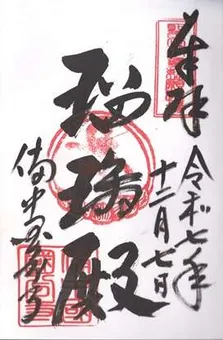 奉拝
令和七年
十二月七日
瑠璃殿
備中国分寺